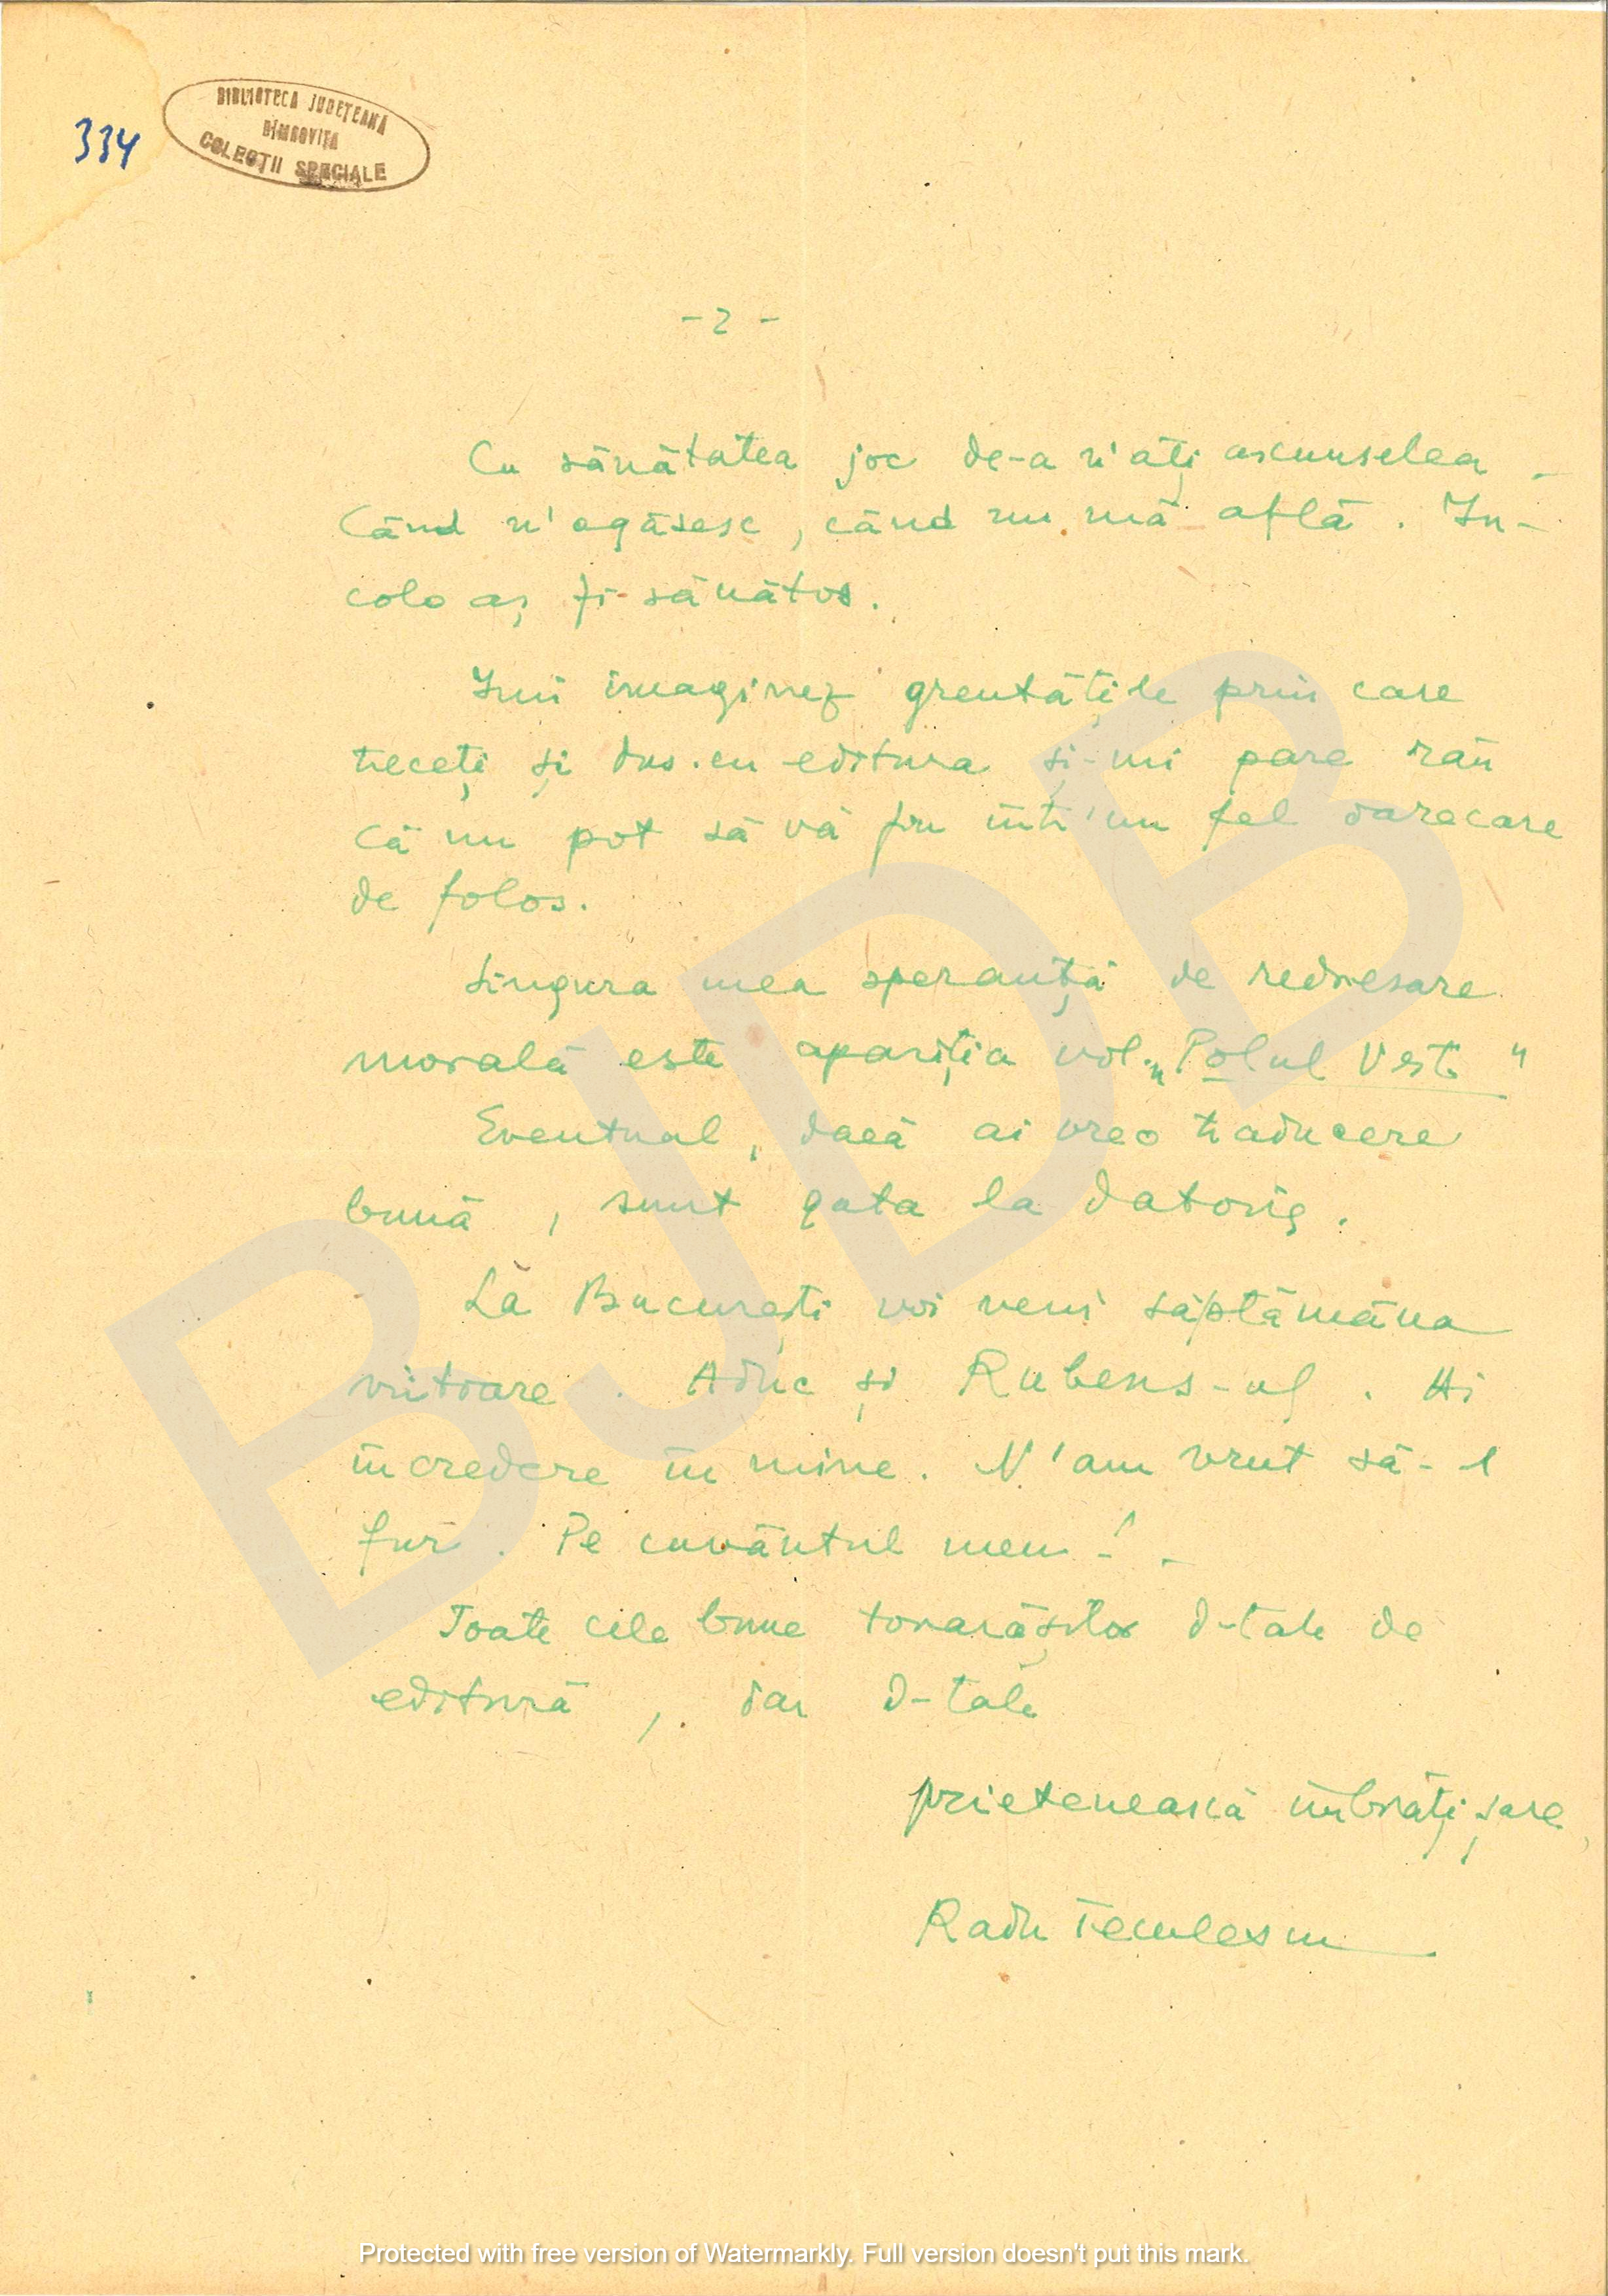 334
BIBLIOTECA JUDEȚEANĂ
DÎMBOVIȚA
COLECȚII SPECIALE
- 2 -
Cu sănătatea joc de-a v'ați ascunselea
Când n'o găsesc, când nu mă află. In-
colo aș fi sănătos.
Imi imaginez greutățile prin care
treceți și dvs. cu editura și-mi pare rău
că nu pot să vă fiu într'un fel oarecare
de folos.
Singura mea speranță de redresare
morală este apariția vol. „Polul Vest"
Eventual, dacă ai vreo traducere
bună, sunt gata la datorie.
La București voi veni săptămâna
viitoare. Aduc și Rubens-ul. Ai
încredere în mine. N'am vrut să-l
fur. Pe cuvântul meu!
Toate cele bune tovarășilor d-tale de
editură, iar d-tale
prietenească îmbrățișare,
Radu Teculescu
BJDB
Protected with free version of Watermarkly. Full version doesn't put this mark.